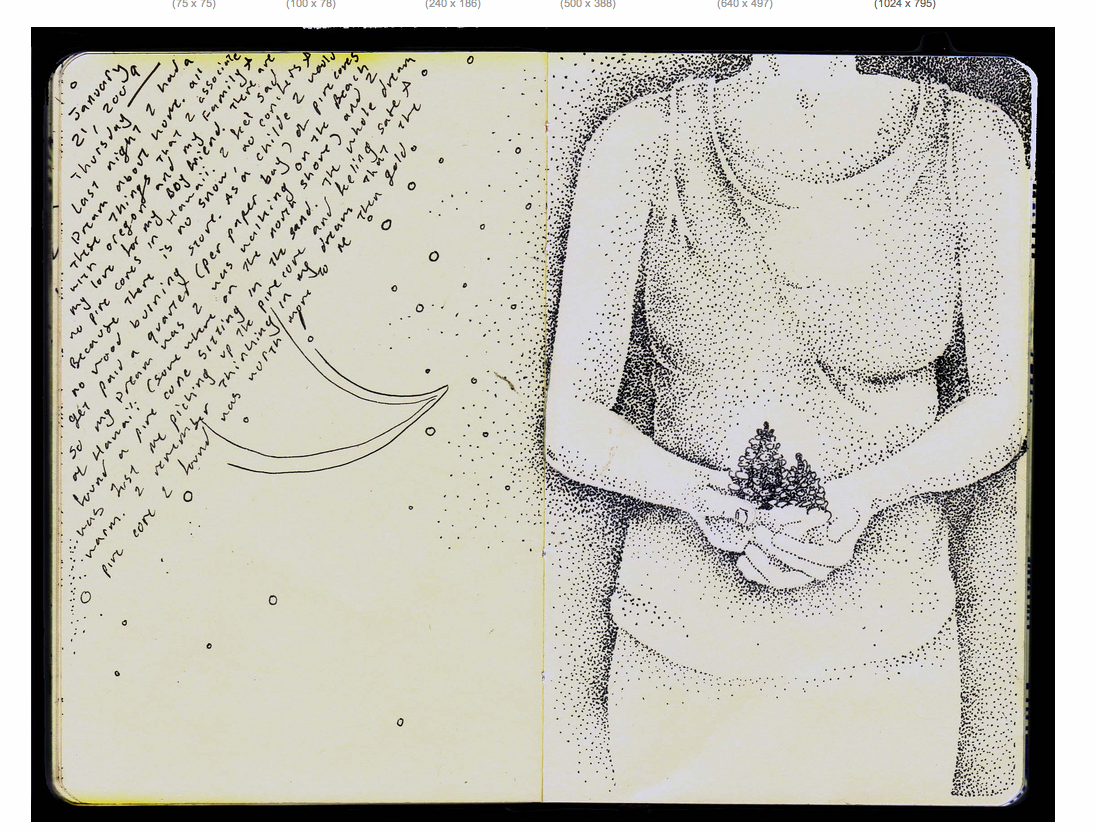 (75 x 75) (100 x 78) (240 x 186) (500 x 388) (640 x 497) (1024 x 795)
January
21, 2009
Thursday
Last night I had a
Dream about home. all
these things that I associate
with oregon and my family +
my love for my Boy friend. There are
no pine cones in Hawaii. I feel sad
Because there is no snow, no con ifers +
no wood burning stove. As a childe I would
get paid a quarter (per paper bag) of pine cones
so my Dream was I was walking on the Beach
of Hawaii (some where on the north shore) and I
found a pine cone sitting in the sand. The whole dream
was just me picking up the pine cone and feeling safe +
warm. I remember thinking in my dream that the
pine cone I found was worth more to me than gold